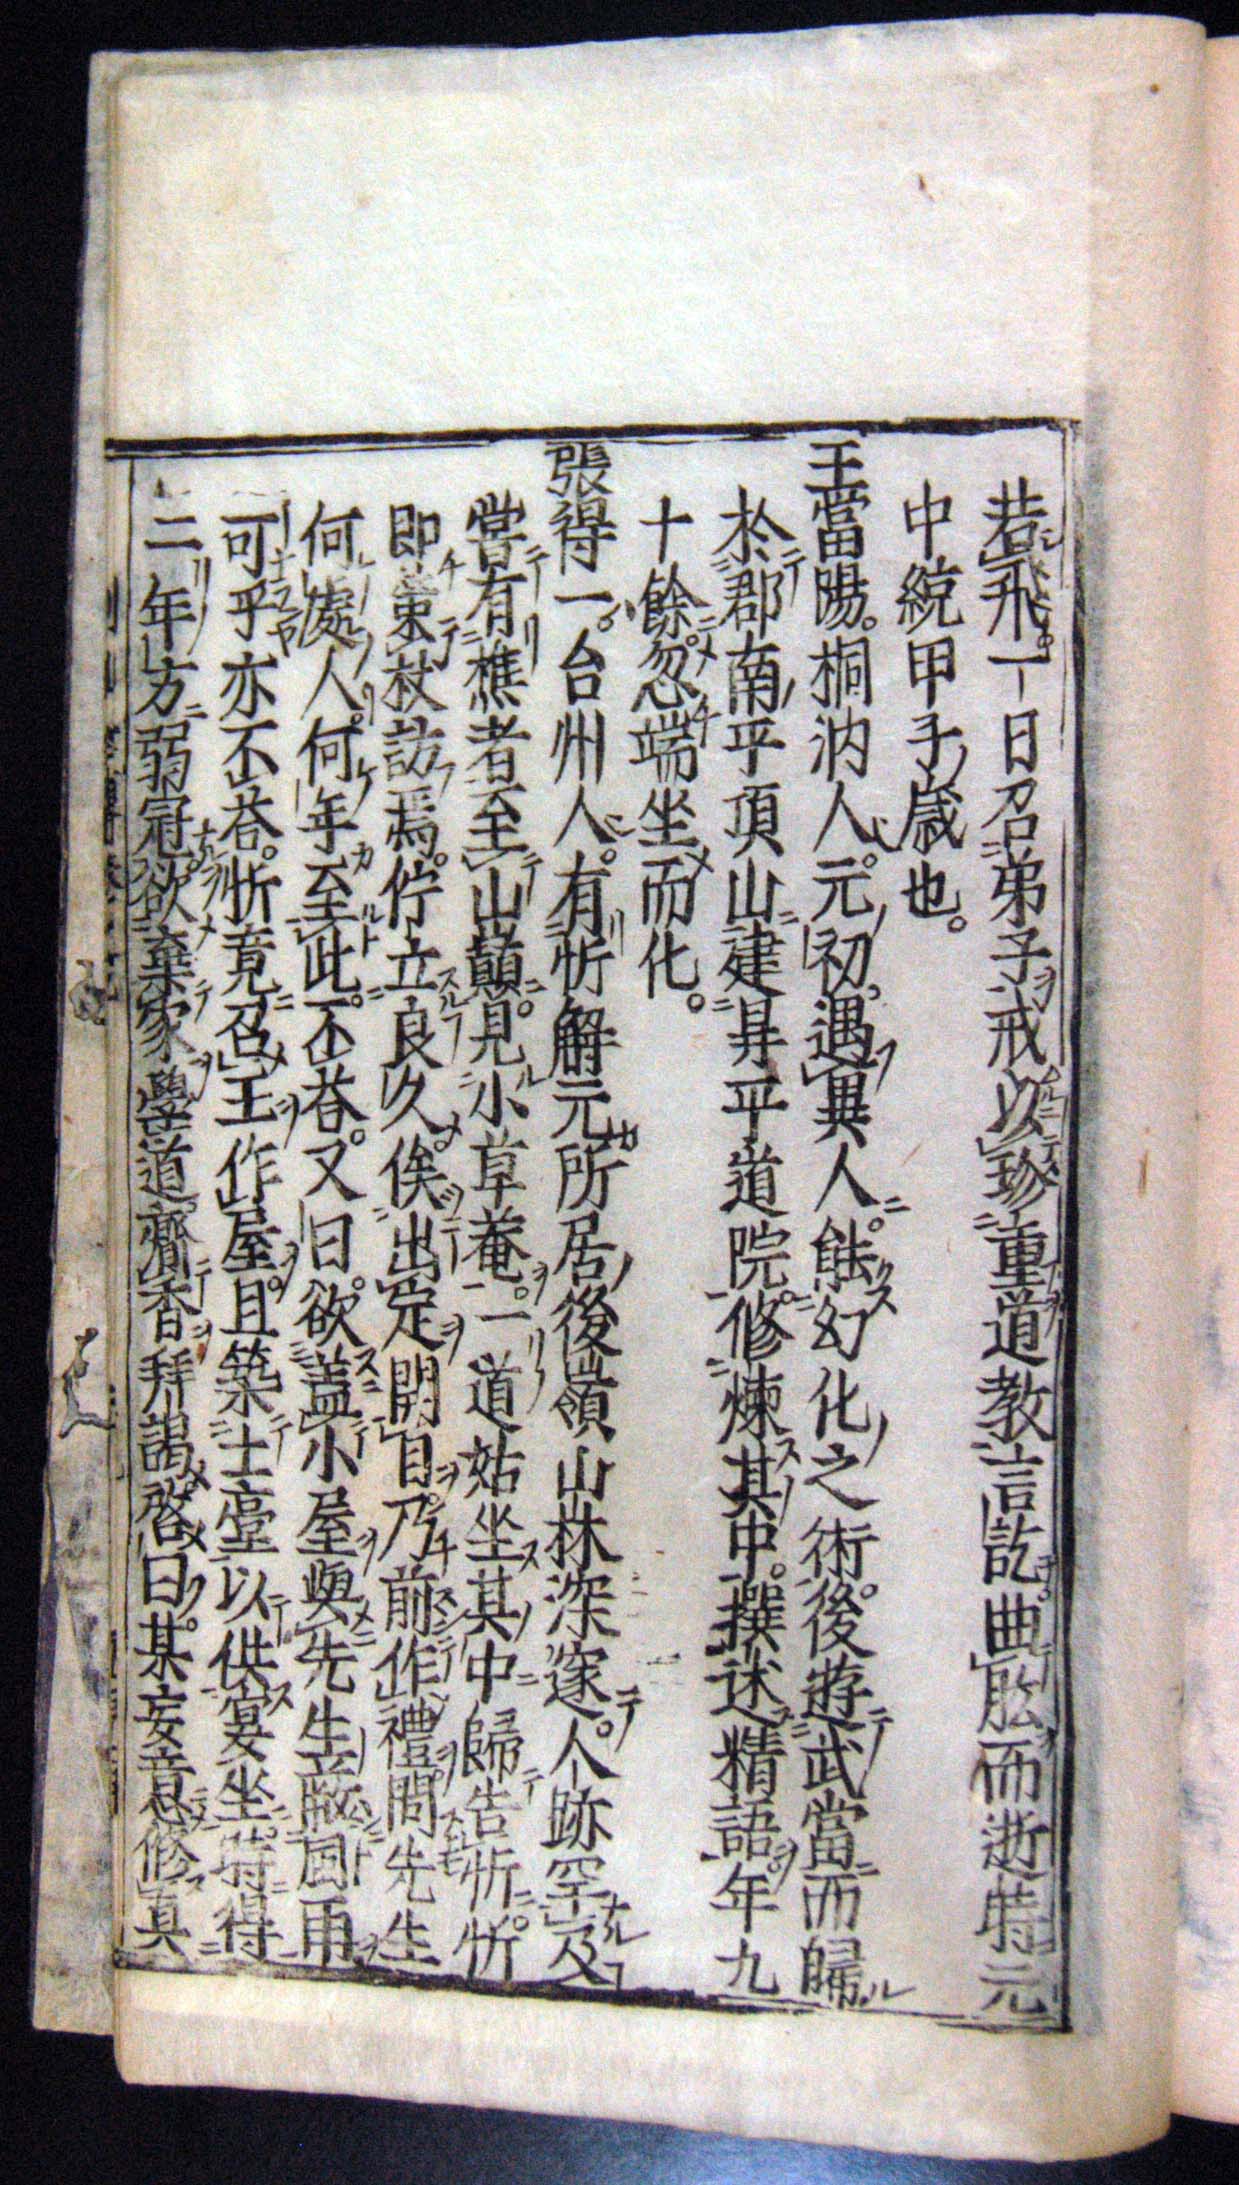 若飛一日召弟子戒以珍重道教言訖曲肱而逝時元
中統甲子歲也。
王當陽。桐汭人。元初遇異人。能幻化之術。後遊武當而歸
於郡南平頂山建昇平道院。修煉其中。撰述精語。年九
十餘。忽端坐而化。
張得一。台州人。有忻解元所居後嶺山林深邃。人跡罕及
嘗有樵者至山巔。見小草菴。一道姑坐其中歸告忻。忻
即策杖訪焉。佇立良久。俟出定開目。乃前作禮。問先生
何處人。何年至此。不荅。又曰。欲蓋小屋與先生蔽風雨
可乎亦不荅。忻竟召王作屋。且築土臺以供宴坐。時得
一年方弱冠。欲棄家學道。齎香拜謁啓曰。某妄意修真